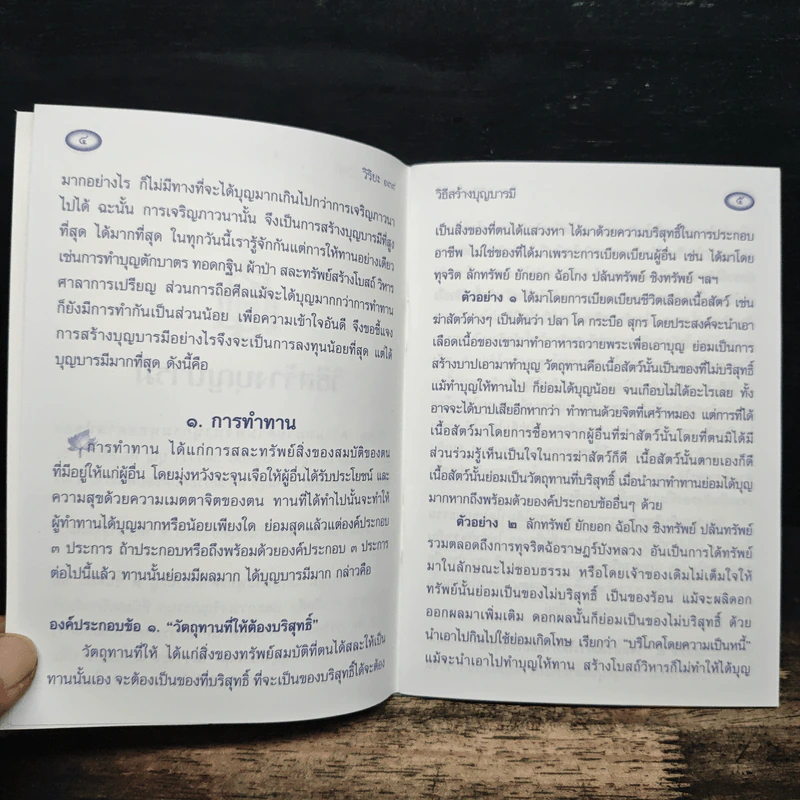 ๔
วิริยะ ๑๙๙
มากอย่างไร ก็ไม่มีทางที่จะได้บุญมากเกินไปกว่าการเจริญภาวนา
ไปได้ ฉะนั้น การเจริญภาวนานั้น จึงเป็นการสร้างบุญบารมีที่สูง
ที่สุด ได้มากที่สุด ในทุกวันนี้เรารู้จักกันแต่การให้ทานอย่างเดียว
เช่นการทำบุญตักบาตร ทอดกฐิน ผ้าป่า สละทรัพย์สร้างโบสถ์ วิหาร
ศาลาการเปรียญ ส่วนการถือศีลแม้จะได้บุญมากกว่าการทำทาน
ก็ยังมีการทำกันเป็นส่วนน้อย เพื่อความเข้าใจอันดี จึงขอชี้แจง
การสร้างบุญบารมีอย่างไรจึงจะเป็นการลงทุนน้อยที่สุด แต่ได้
บุญบารมีมากที่สุด ดังนี้คือ
๑. การทำทาน
การทำทาน ได้แก่การสละทรัพย์สิ่งของสมบัติของตน
ที่มีอยู่ให้แก่ผู้อื่น โดยมุ่งหวังจะจุนเจือให้ผู้อื่นได้รับประโยชน์ และ
ความสุขด้วยความเมตตาจิตของตน ทานที่ได้ทำไปนั้นจะทำให้
ผู้ทำทานได้บุญมากหรือน้อยเพียงใด ย่อมสุดแล้วแต่องค์ประกอบ
๓ ประการ ถ้าประกอบหรือถึงพร้อมด้วยองค์ประกอบ ๓ ประการ
ต่อไปนี้แล้ว ทานนั้นย่อมมีผลมาก ได้บุญบารมีมาก กล่าวคือ
องค์ประกอบข้อ ๑. “วัตถุทานที่ให้ต้องบริสุทธิ์”
วัตถุทานที่ให้ ได้แก่สิ่งของทรัพย์สมบัติที่ตนได้สละให้เป็น
ทานนั้นเอง จะต้องเป็นของที่บริสุทธิ์ ที่จะเป็นของบริสุทธิ์ได้จะต้อง
วิธีสร้างบุญบารมี
๕
เป็นสิ่งของที่ตนได้แสวงหา ได้มาด้วยความบริสุทธิ์ในการประกอบ
อาชีพ ไม่ใช่ของที่ได้มาเพราะการเบียดเบียนผู้อื่น เช่น ได้มาโดย
ทุจริต ลักทรัพย์ ยักยอก ฉ้อโกง ปล้นทรัพย์ ชิงทรัพย์ ฯลฯ
ตัวอย่าง ๑ ได้มาโดยการเบียดเบียนชีวิตเลือดเนื้อสัตว์ เช่น
ฆ่าสัตว์ต่างๆ เป็นต้นว่า ปลา โค กระบือ สุกร โดยประสงค์จะนำเอา
เลือดเนื้อของเขามาทำอาหารถวายพระเพื่อเอาบุญ ย่อมเป็นการ
สร้างบาปเอามาทำบุญ วัตถุทานคือเนื้อสัตว์นั้นเป็นของที่ไม่บริสุทธิ์
แม้ทำบุญให้ทานไป ก็ย่อมได้บุญน้อย จนเกือบไม่ได้อะไรเลย ทั้ง
อาจจะได้บาปเสียอีกหากว่า ทำทานด้วยจิตที่เศร้าหมอง แต่การที่ได้
เนื้อสัตว์มาโดยการซื้อหาจากผู้อื่นที่ฆ่าสัตว์นั้นโดยที่ตนมิได้มี
ส่วนร่วมรู้เห็นเป็นใจในการฆ่าสัตว์ก็ดี เนื้อสัตว์นั้นตายเองก็ดี
เนื้อสัตว์นั้นย่อมเป็นวัตถุทานที่บริสุทธิ์ เมื่อนำมาทำทานย่อมได้บุญ
มากหากถึงพร้อมด้วยองค์ประกอบข้ออื่นๆ ด้วย
ตัวอย่าง ๒ ลักทรัพย์ ยักยอก ฉ้อโกง ชิงทรัพย์ ปล้นทรัพย์
รวมตลอดถึงการทุจริตฉ้อราษฎร์บังหลวง อันเป็นการได้ทรัพย์
มาในลักษณะไม่ชอบธรรม หรือโดยเจ้าของเดิมไม่เต็มใจให้
ทรัพย์นั้นย่อมเป็นของไม่บริสุทธิ์ เป็นของร้อน แม้จะผลิดอก
ออกผลมาเพิ่มเติม ดอกผลนั้นก็ย่อมเป็นของไม่บริสุทธิ์ ด้วย
นำเอาไปกินไปใช้ย่อมเกิดโทษ เรียกว่า “บริโภคโดยความเป็นหนี้”
แม้จะนำเอาไปทำบุญให้ทาน สร้างโบสถ์วิหารก็ไม่ทำให้ได้บุญ